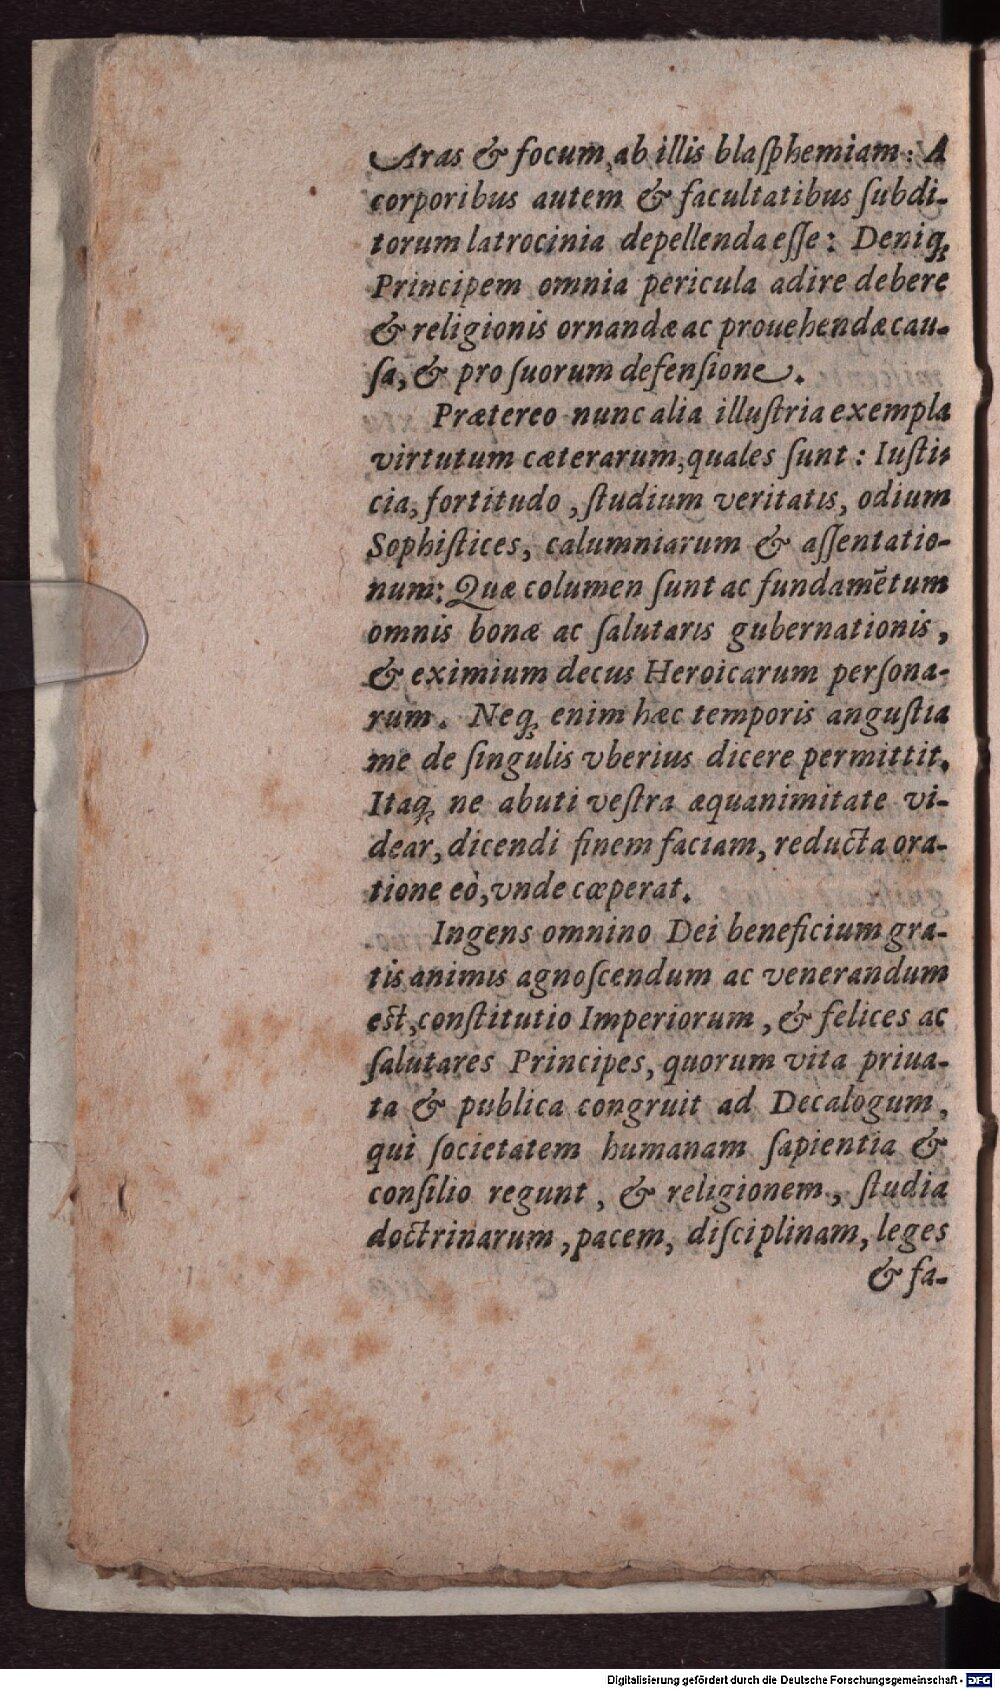 Aras & focum, ab illis blaſphemiam: A
corporibus autem & facultatibus ſubdi-
torum latrocinia depellenda eſſe: Deniq́;
Principem omnia pericula adire debere
& religionis ornandæ ac prouehendæ cau-
ſa, & pro ſuorum defenſione.
Prætereo nunc alia illuſtria exempla
virtutum cæterarum, quales ſunt: Iuſti-
cia, fortitudo, ſtudium veritatis, odium
Sophiſtices, calumniarum & aſſentatio-
num: Quæ columen ſunt ac fundamẽtum
omnis bonæ ac ſalutaris gubernationis,
& eximium decus Heroicarum perſona-
rum. Neq; enim hæc temporis anguſtia
me de ſingulis vberius dicere permittit.
Itaq; ne abuti veſtra æquanimitate vi-
dear, dicendi finem faciam, reducta ora-
tione eò, vnde cœperat.
Ingens omnino Dei beneficium gra-
tis animis agnoſcendum ac venerandum
eſt, conſtitutio Imperiorum, & felices ac
ſalutares Principes, quorum vita priua-
ta & publica congruit ad Decalogum,
qui ſocietatem humanam ſapientia &
conſilio regunt, & religionem, ſtudia
doctrinarum, pacem, diſciplinam, leges
& fa-
Digitalisierung gefördert durch die Deutsche Forschungsgemeinschaft - DFG